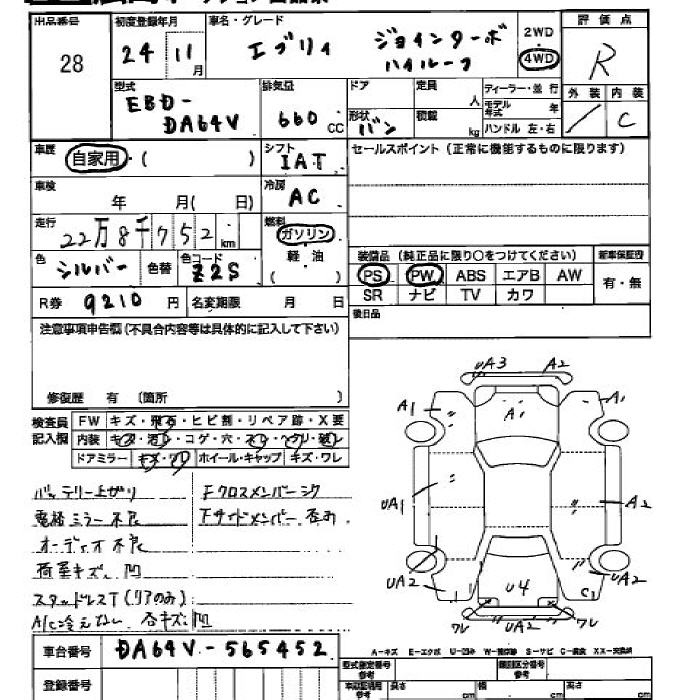 出品番号 28
初度登録年月 24 11月
車名・グレード エブリィ ジョインターボ ハイルーフ
2WD 4WD
評価点 R
外装 / 内装 C
型式 EBD-DA64V
排気量 660 CC
ドア 形状 バン
定員 人
積載 kg
ディーラー・並行
モデル年式 年
ハンドル 左・右
車歴 自家用・( )
シフト IAT
セールスポイント (正常に機能するものに限ります)
車検 年 月( 日)
冷房 AC
走行 22万8千752km
燃料 ガソリン 軽油 ( )
色 シルバー 色替 色コード Z2S
装備品 (純正品に限り○をつけてください) 新車保証書
PS PW ABS エアB AW 有・無
SR ナビ TV カワ
R券 9210円 名変期限 月 日
後日品
注意事項申告欄(不具合内容等は具体的に記入して下さい)
修復歴 有 (箇所 )
検査員記入欄
FW キズ・飛石・ヒビ割・リペア跡・X要
内装 キズ・汚レ・コゲ・穴・スレ・ヘタリ・破レ
ドアミラー キズ・ワレ ホイール・キャップ キズ・ワレ
バッテリー上がり Fクロスメンバーシワ
電格ミラー不良 Fサイドメンバー歪み
オーディオ不良
荷室キズ、凹
スタッドレスT(リアのみ)
A/C冷えない 各キズ凹
UA3 A2
A1 A1 A1
UA1 A2
UA2 U4 C1 UA2
ワレ UA2 ワレ
A-キズ E-エクボ U-凹み W-補修跡 S-サビ C-腐食 XX-交換済
車台番号 DA64V-565452
登録番号
型式指定番号 参考 類別区分番号 参考
長さ cm 幅 cm 高さ cm